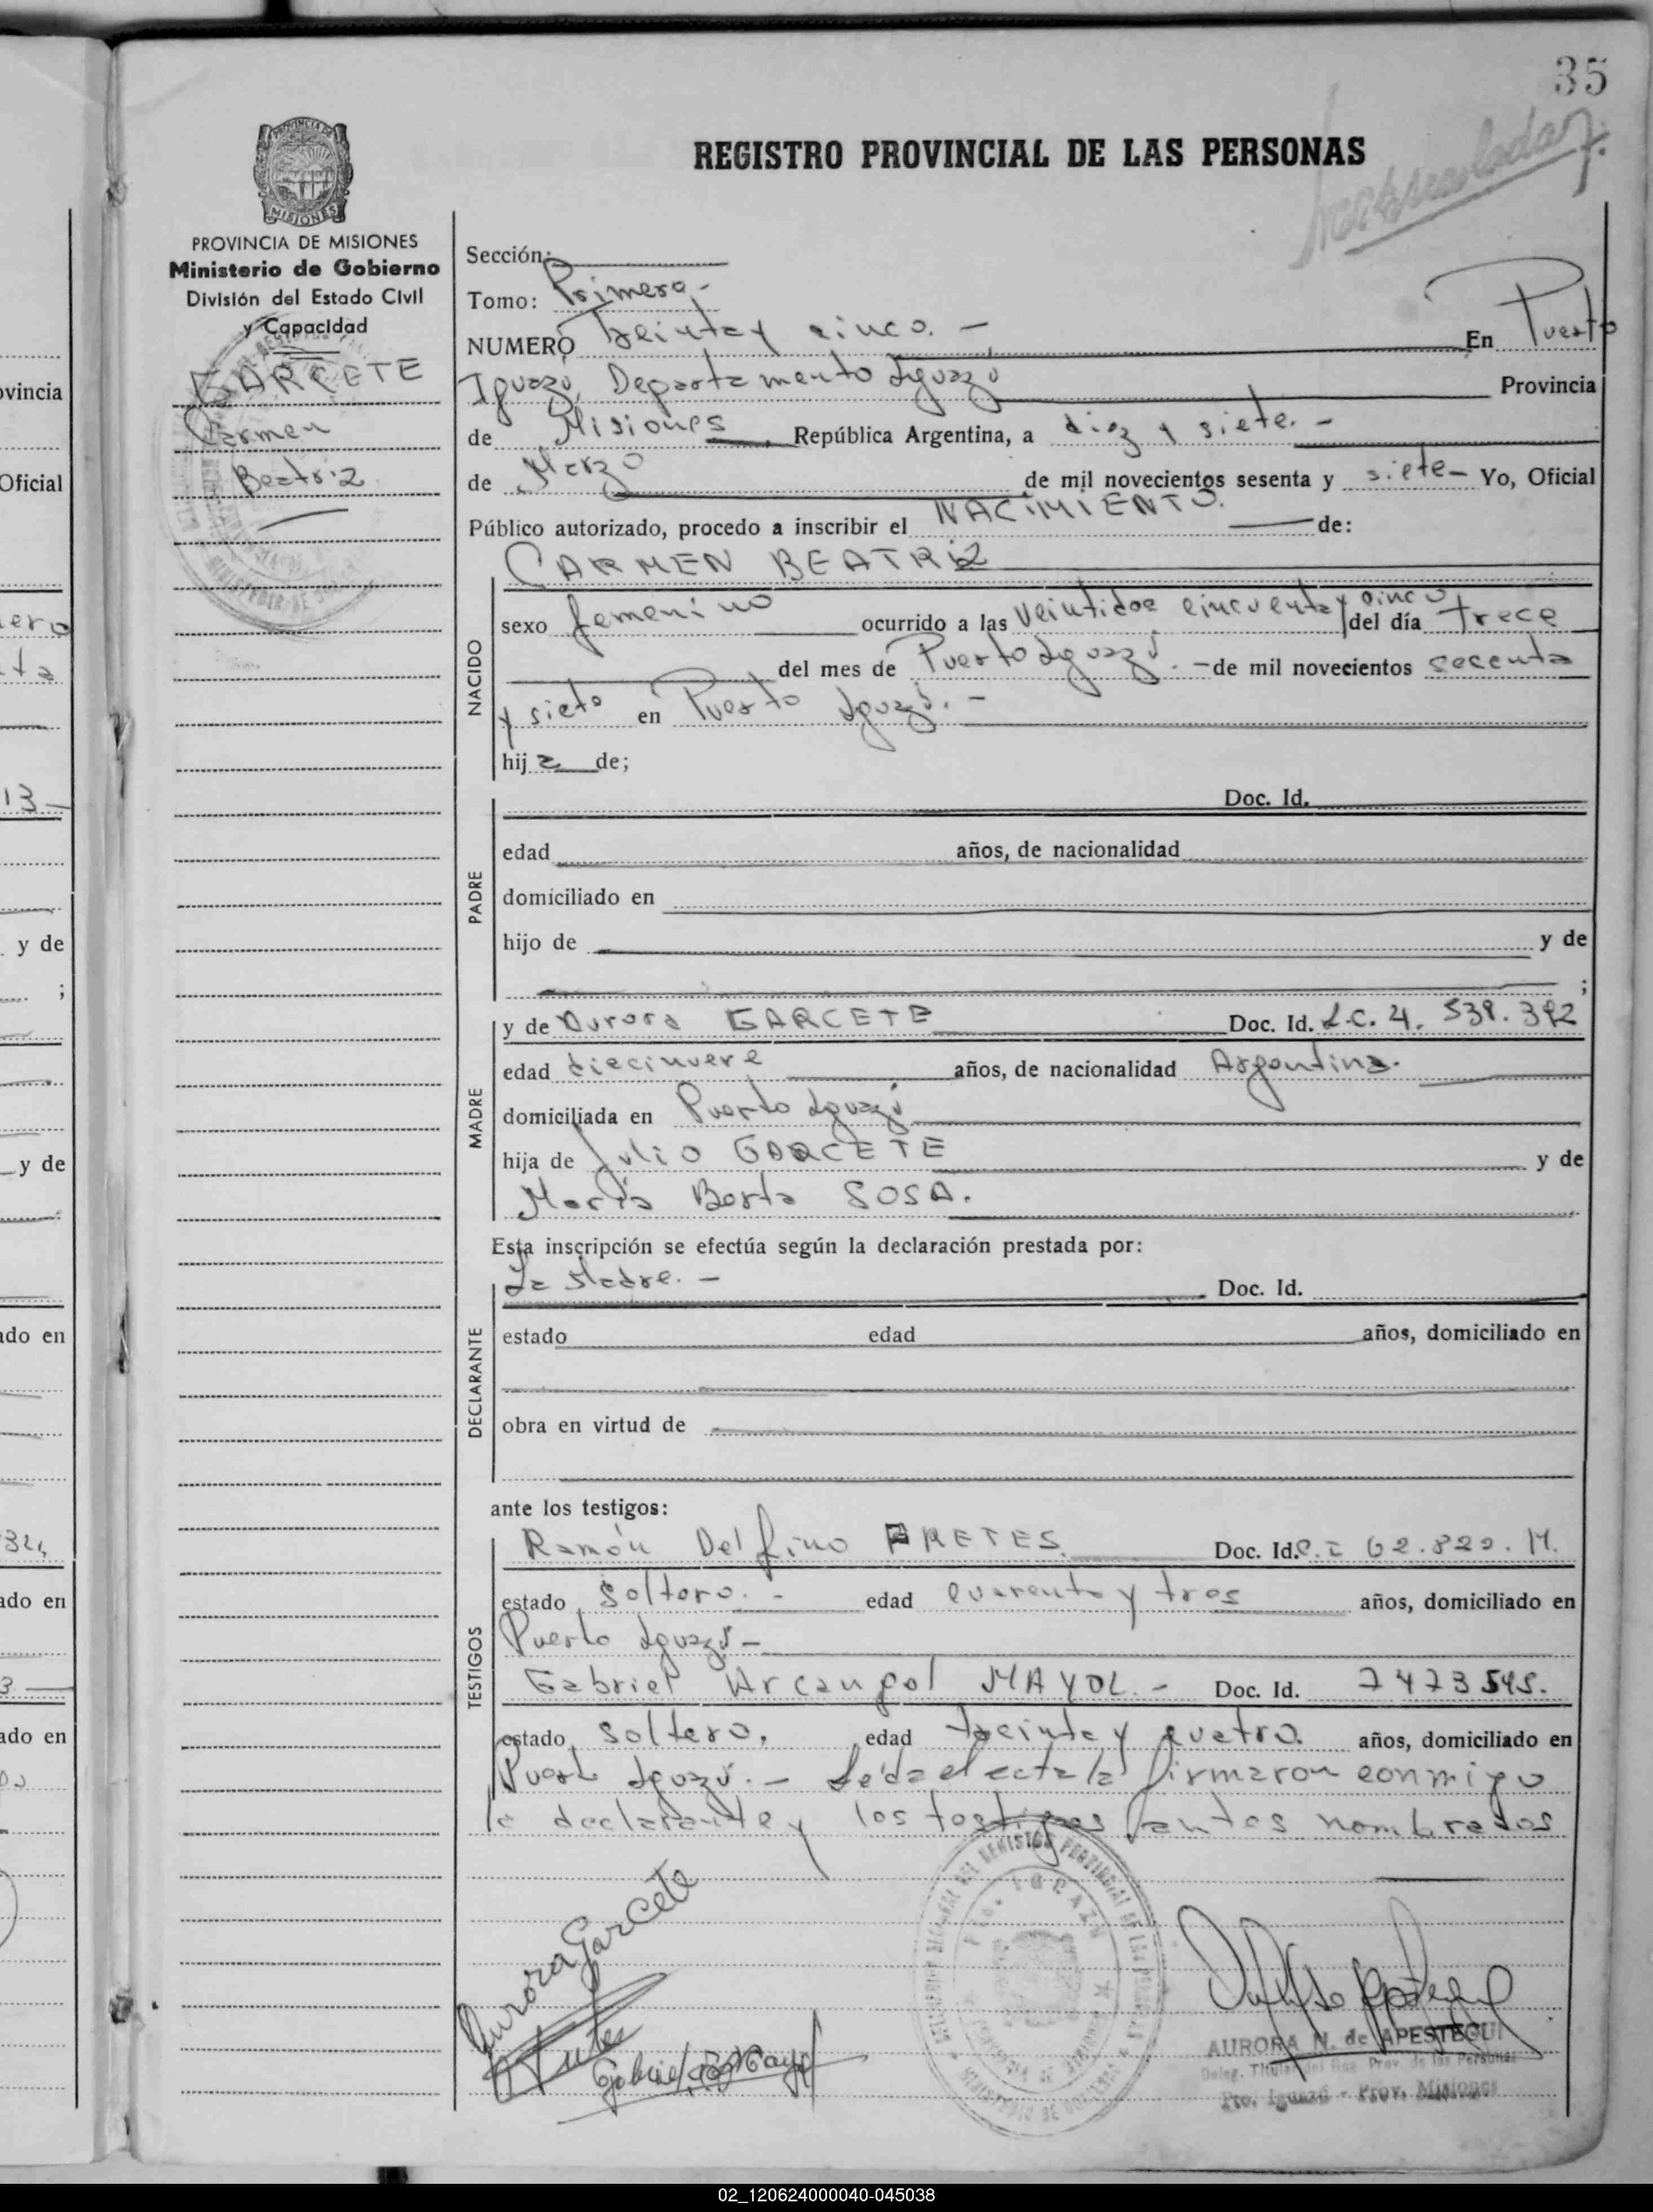 35
REGISTRO PROVINCIAL DE LAS PERSONAS
PROVINCIA DE MISIONES
MISIONES
PROVINCIA DE MISIONES
Ministerio de Gobierno
División del Estado Civil
y Capacidad
GARCETE
Carmen
Beatriz
Sección:
Tomo: Primero.-
NUMERO Treinta y cinco. - En Puerto
Iguazú, Departamento Iguazú Provincia
de Misiones, República Argentina, a diez y siete. -
de Marzo de mil novecientos sesenta y siete- Yo, Oficial
Público autorizado, procedo a inscribir el NACIMIENTO. de:
CARMEN BEATRIZ
NACIDO
sexo femenino ocurrido a las veintidos cincuenta y cinco del día trece
del mes de Puerto Iguazú. - de mil novecientos secenta
y siete en Puerto Iguazú. -
hij a de;
PADRE
Doc. Id.
edad años, de nacionalidad
domiciliado en
hijo de y de
;
MADRE
y de Aurora GARCETE Doc. Id. L.C. 4. 538.392
edad diecinueve años, de nacionalidad Argentina.
domiciliada en Puerto Iguazú
hija de Julio GARCETE y de
María Berta SOSA.
Esta inscripción se efectúa según la declaración prestada por:
DECLARANTE
La Madre. - Doc. Id.
estado edad años, domiciliado en
obra en virtud de
ante los testigos:
TESTIGOS
Ramón Delfino PRETES. Doc. Id. C.I 62.820. M.
estado soltero. - edad cuarenta y tres años, domiciliado en
Puerto Iguazú-
Gabriel Arcangel MAYOL. - Doc. Id. 7473545.
estado soltero, edad treinta y cuatro. años, domiciliado en
Puerto Iguazú. - Leída el acta la firmaron conmigo
la declarante y los testigos antes nombrados
Aurora Garcete
AURORA N. de APESTEGUI
Deleg. Titular del Reg. Prov. de las Personas
Pto. Iguazú - Prov. Misiones
vincia
Oficial
ero
ta
13-
y de
;
y de
ado en
324
ado en
3
ado en
02_120624000040-045038